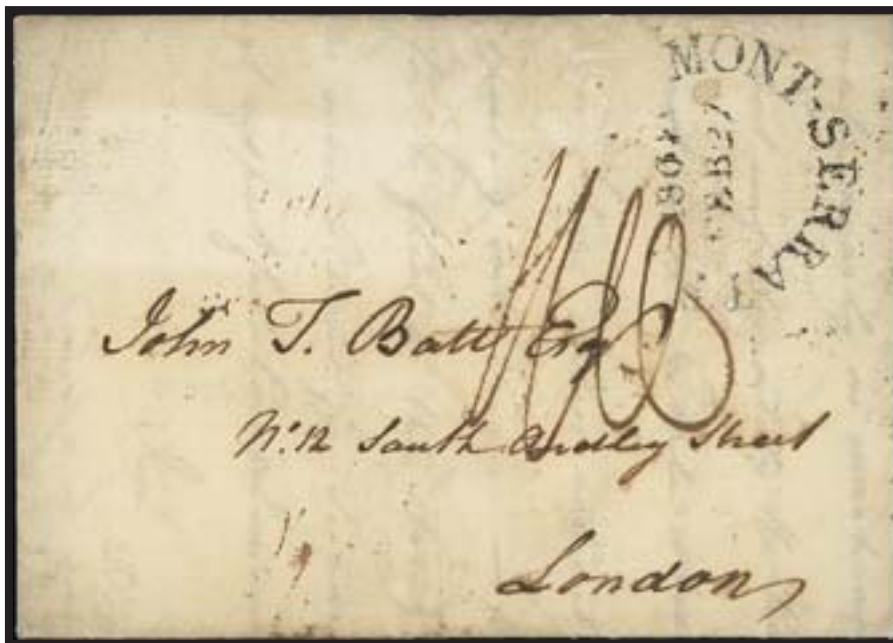 MONT-SERRAT
FEB 27
John T. Batt Esq
No. 12 South Audley Street
London